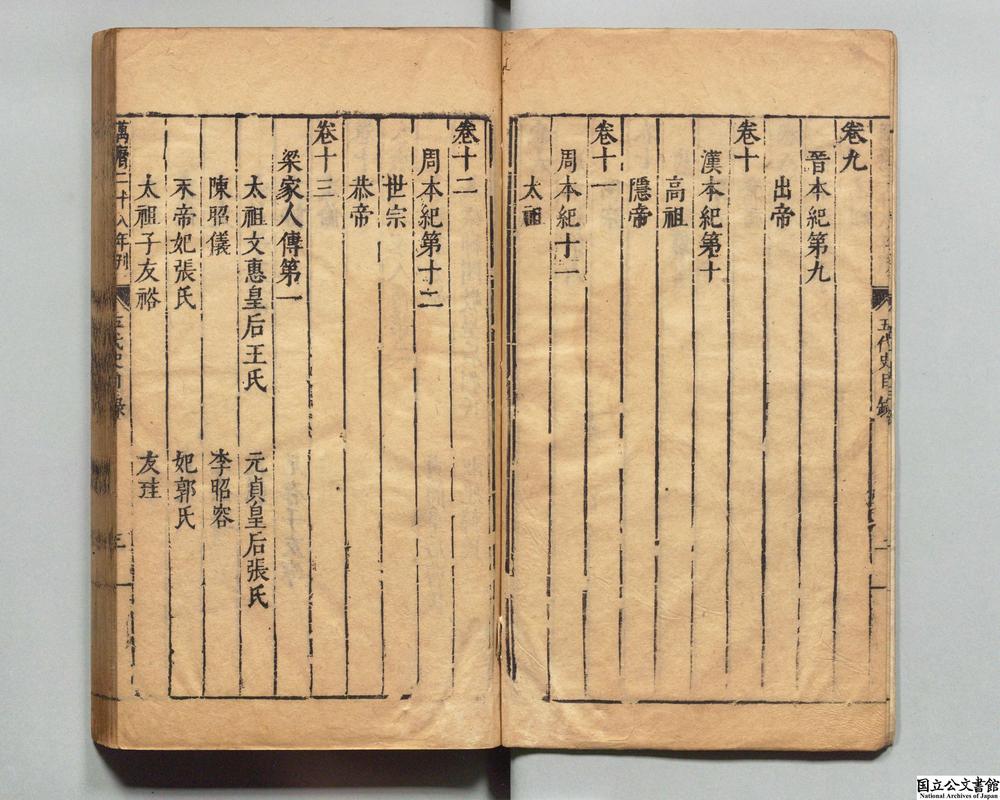 五代史目錄
二
卷九
晉本紀第九
出帝
卷十
漢本紀第十
高祖
隱帝
卷十一
周本紀十一
太祖
卷十二
周本紀第十二
世宗
恭帝
卷十三
梁家人傳第一
太祖文惠皇后王氏 元貞皇后張氏
陳昭儀 李昭容
末帝妃張氏 妃郭氏
太祖子友裕 友珪
萬曆二十八年刊
五代史目錄
三
国立公文書館
National Archives of Japan